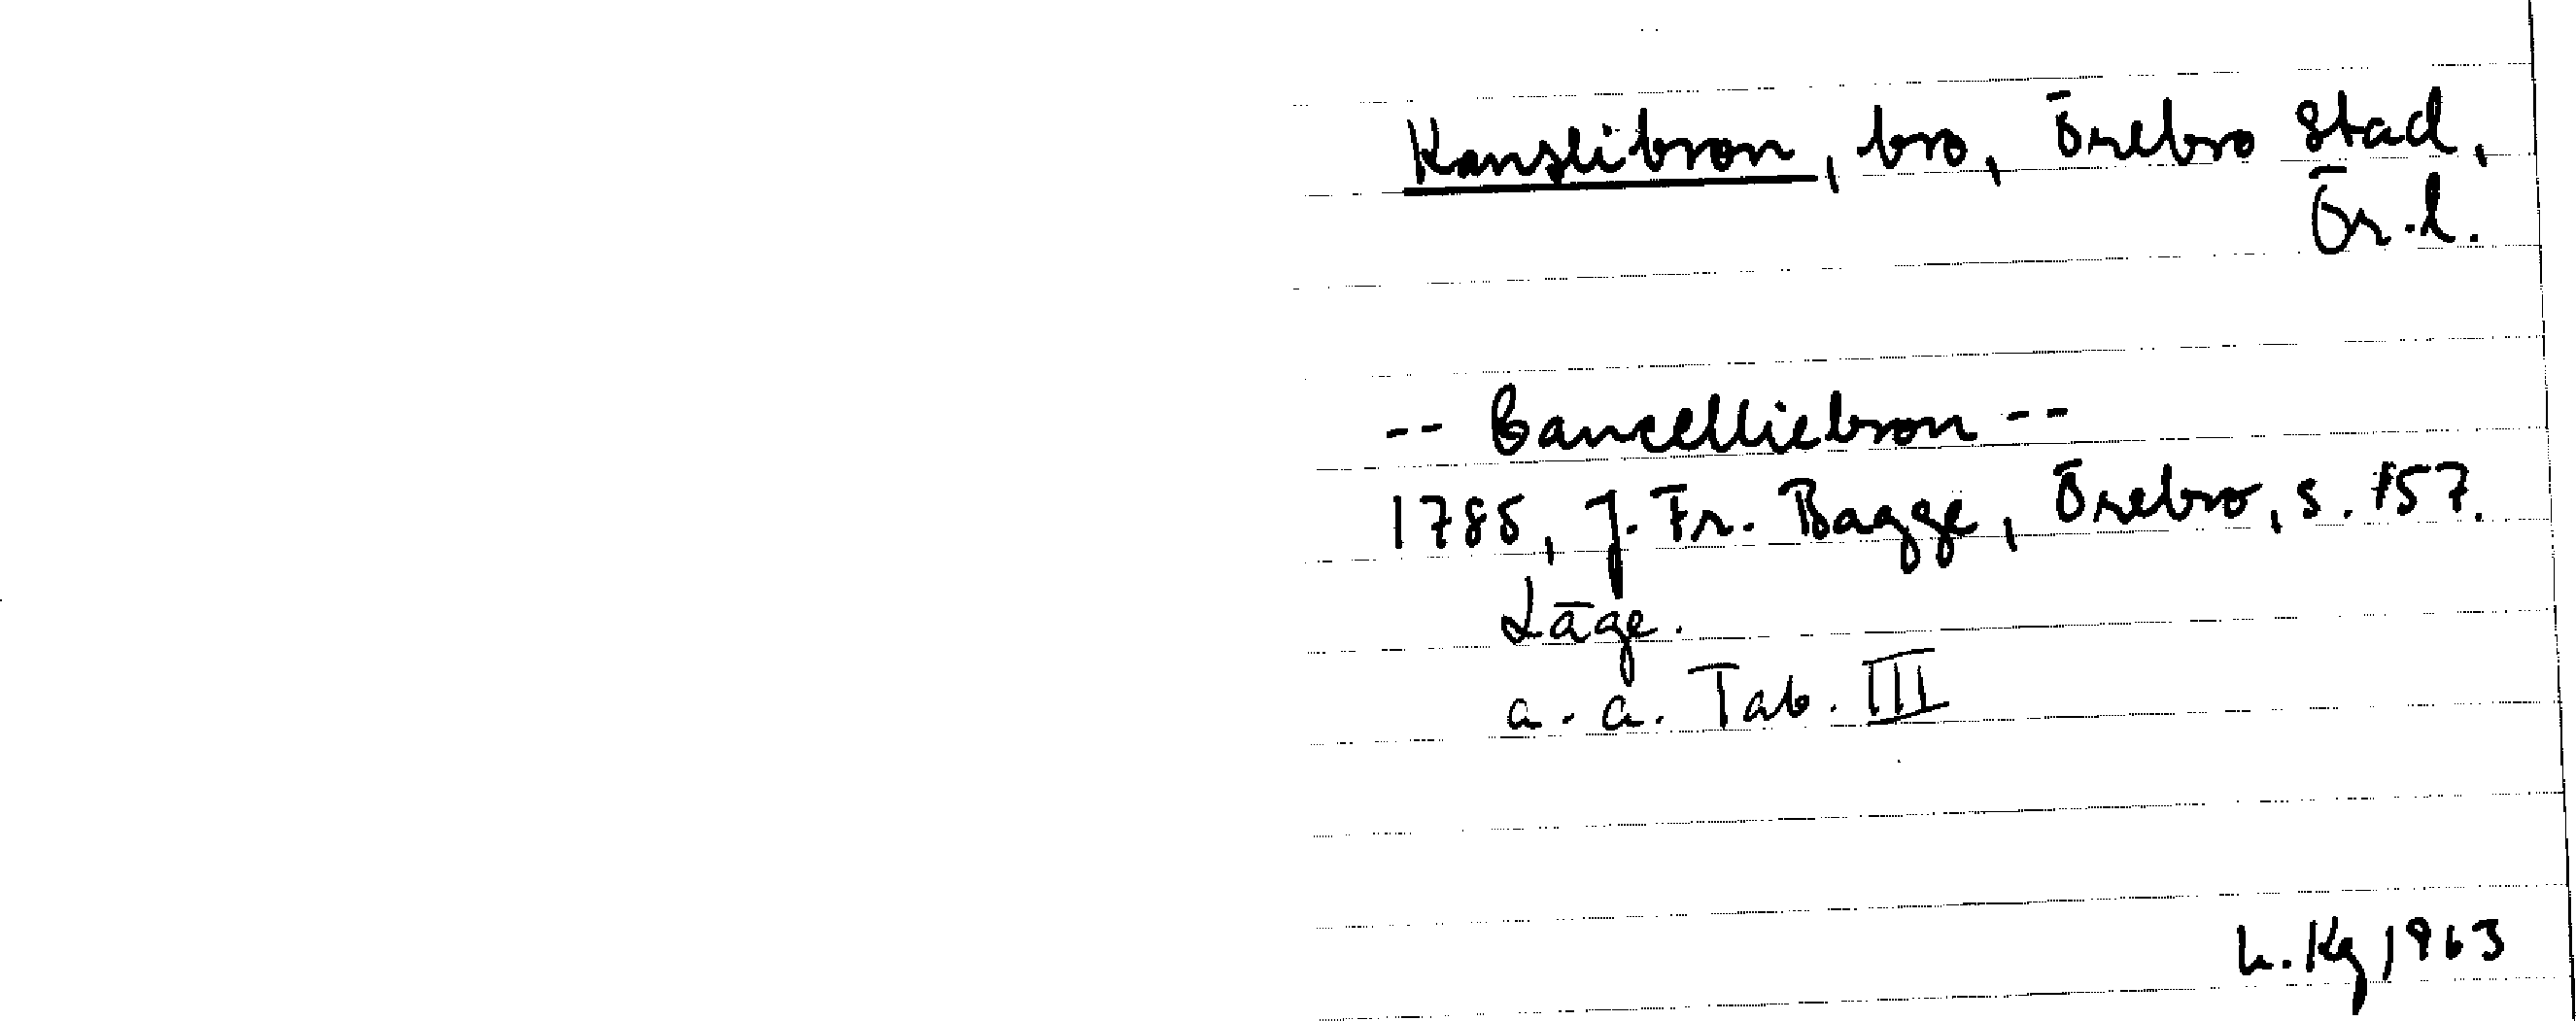 Kanslibron, bro, Örebro stad,
Ör.l.
-- Cancelliebron --
1785, J. Fr. Bagge, Örebro, s. 157.
Läge.
a. a. Tab. III
L. Kg 1963